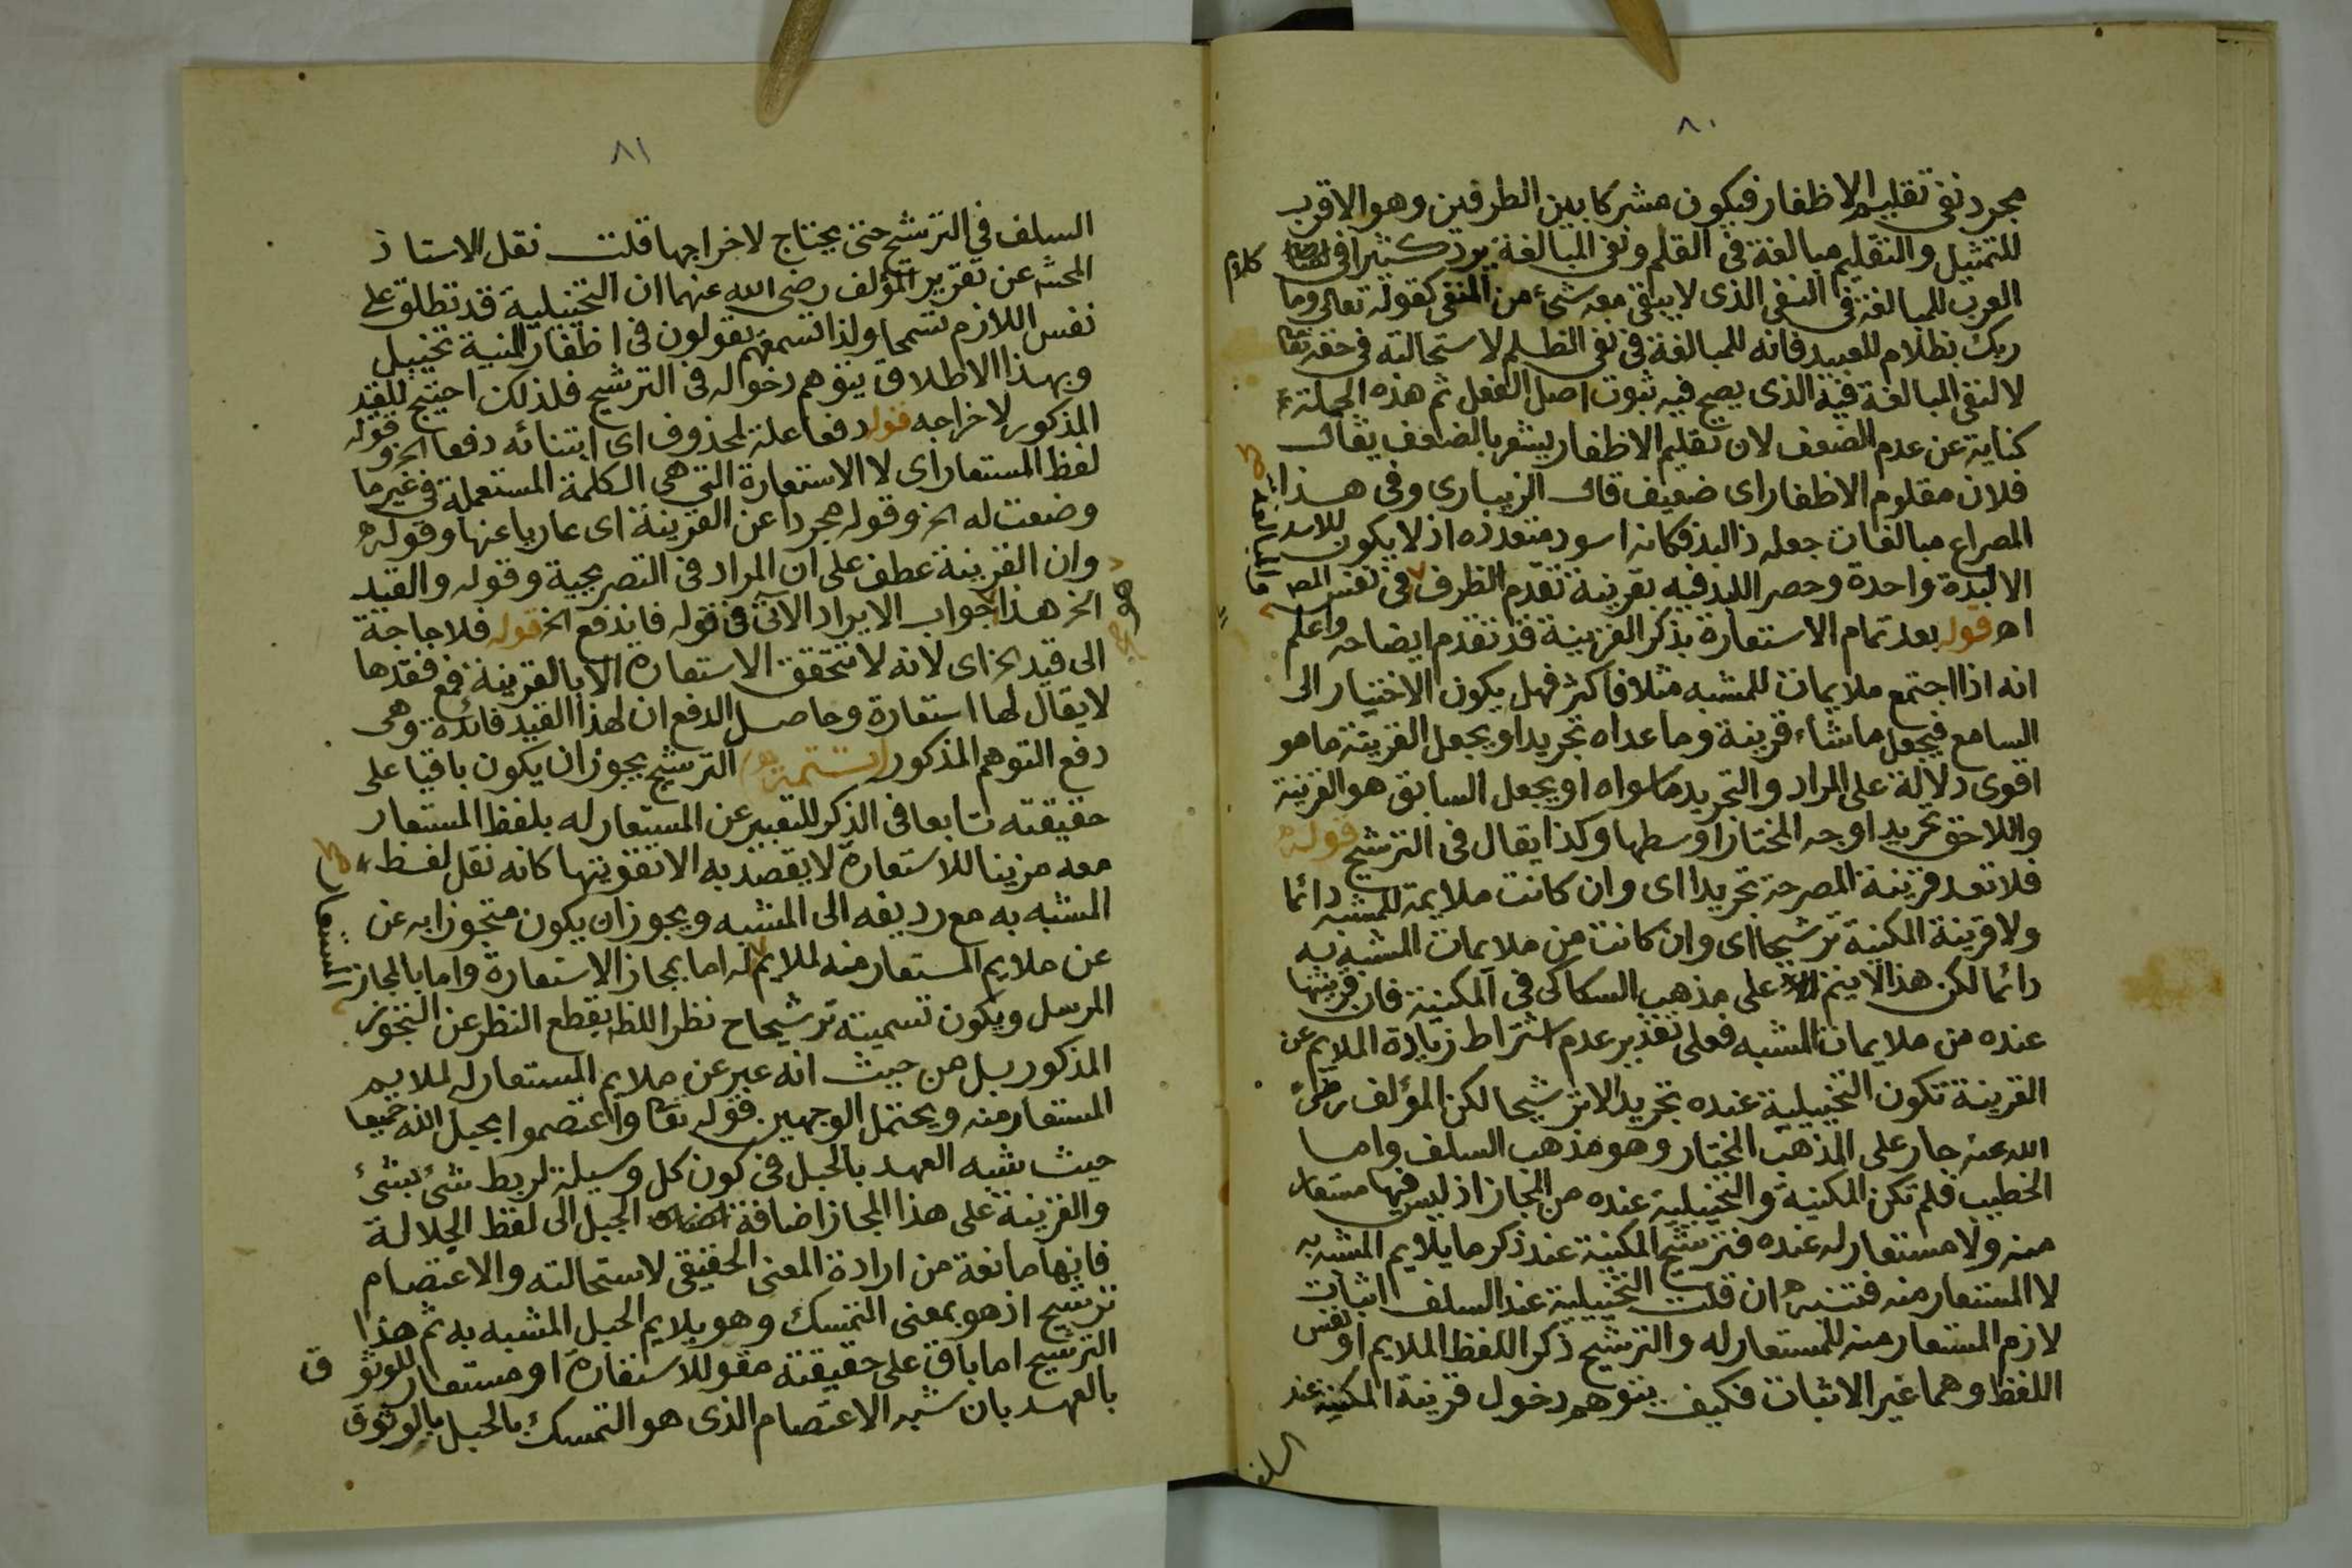 ٨٠
مجرد نفى تقليم الاظفار فيكون مشركا بين الطرفين وهو الاقرب
للتمثيل والتقليم مبالغة فى القلم ونفى المبالغة يرد كثيرا فى كلام
العرب للمبالغة فى النفى الذى لا يبقى معه شئ من المنفى كقوله تعالى وما
ربك بظلام للعبيد فانه للمبالغة فى نفى الظلم لاستحالته فى حقه تعا
لا لنفى المبالغة فيه الذى يصح فيه ثبوت اصل الفعل ثم هذه الجملة
كناية عن عدم الضعف لان تقليم الاظفار يشعر بالضعف يقال
فلان مقلوم الاظفار اى ضعيف قال الزيبارى وفى هذا
المصراع مبالغات جعله ذا لبد فكانه اسود متعدده اذ لا يكون للاسد
الا لبدة واحدة وحصر اللبد فيه بقرينة تقدم الظرف وفى نفس المص
المبالغة
اه قوله بعد تمام الاستعارة بذكر القرينة قد تقدم ايضاحه واعلم
انه اذا اجتمع ملايمان للمشبه مثلا فاكثر فهل يكون الاختيار الى
السامع فيجعل ما شاء قرينة وما عداه تجريدا او يجعل القرينة ما هو
اقوى دلالة على المراد والتجريد ما سواه او يجعل السابق هو القرينة
واللاحق تجريدا اوجه المختار اوسطها وكذا يقال فى الترشيح قوله
فلا تعد قرينة المصرحة تجريدا اى وان كانت ملايمة للمشبه دائما
ولا قرينة المكنية ترشيحا اى وان كانت من ملايمات المشبه به
دائما لكن هذا لا يتم الا على مذهب السكاكى فى المكنية فان قرينتها
عنده من ملايمات المشبه فعلى تقدير عدم اشتراط زيادة الملايم عن
القرينة تكون التخييلية عنده تجريدا لا ترشيحا لكن المؤلف رضى
الله عنه جار على المذهب المختار وهو مذهب السلف واما
الخطيب فلم تكن المكنية والتخييلية عنده من المجاز اذ ليس فيها مستعار
منه ولا مستعار له عنده فترشيح المكنية عنده ذكر ما يلايم المشبه به
لا المستعار منه فتنبه ان قلت التخييلية عند السلف اثبات
لازم المستعار منه للمستعار له والترشيح ذكر اللفظ الملايم او نفس
اللفظ وهما غير الاثبات فكيف يتوهم دخول قرينة المكنية عند
السلف
٨١
السلف فى الترشيح حتى يحتاج لاخراجها قلت نقل الاستاذ
المحشى عن تقرير المؤلف رضى الله عنهما ان التخييلية قد تطلق على
نفس اللازم تسمحا ولذا تسمعهم يقولون فى اظفار المنية تخييل
وبهذا الاطلاق يتوهم دخوله فى الترشيح فلذلك احتيج للقيد
المذكور لاخراجه قوله دفعا علة لمحذوف اى ابتنائه دفعا الخ وقوله
لفظ المستعار اى لا الاستعارة التى هى الكلمة المستعملة فى غير ما
وضعت له الخ وقوله مجردا عن القرينة اى عاريا عنها وقوله
وان القرينة عطف على ان المراد فى التصريحية وقوله والقيد
الخ هذا جواب الايراد الآتى فى قوله فاندفع الخ قوله فلا حاجة
الى قيد الخ اى لانه لا تتحقق الاستعارة الا بالقرينة فمع فقدها
لا يقال لها استعارة وحاصل الدفع ان لهذا القيد فائدة وهى
دفع التوهم المذكور (تتمة) الترشيح يجوز ان يكون باقيا على
حقيقته تابعا فى الذكر للتعبير عن المستعار له بلفظ المستعار
معه مزينا للاستعارة لا يقصد به الا تقويتها كانه نقل لفظ
المشبه به مع رديفه الى المشبه ويجوز ان يكون متجوزا به عن
المستعار
عن ملايم المستعار منه لملايم له اما بمجاز الاستعارة واما بالمجاز
المرسل ويكون تسميته ترشيحا ح نظرا للظ بقطع النظر عن التجوز
المذكور بل من حيث انه عبر عن ملايم المستعار له لملايم
المستعار منه ويحتمل الوجهين قوله تعا واعتصموا بحبل الله جميعا
حيث شبه العهد بالحبل فى كون كل وسيلة لربط شئ بشئ
والقرينة على هذا المجاز اضافة الحبل الى لفظ الجلالة
فانها مانعة من ارادة المعنى الحقيقى لاستحالته والاعتصام
ترشيح اذ هو بمعنى التمسك وهو يلايم الحبل المشبه به ثم هذا
الترشيح اما باق على حقيقته مقو للاستعارة او مستعار للوثوق
بالعهد بان شبه الاعتصام الذى هو التمسك بالحبل بالوثوق